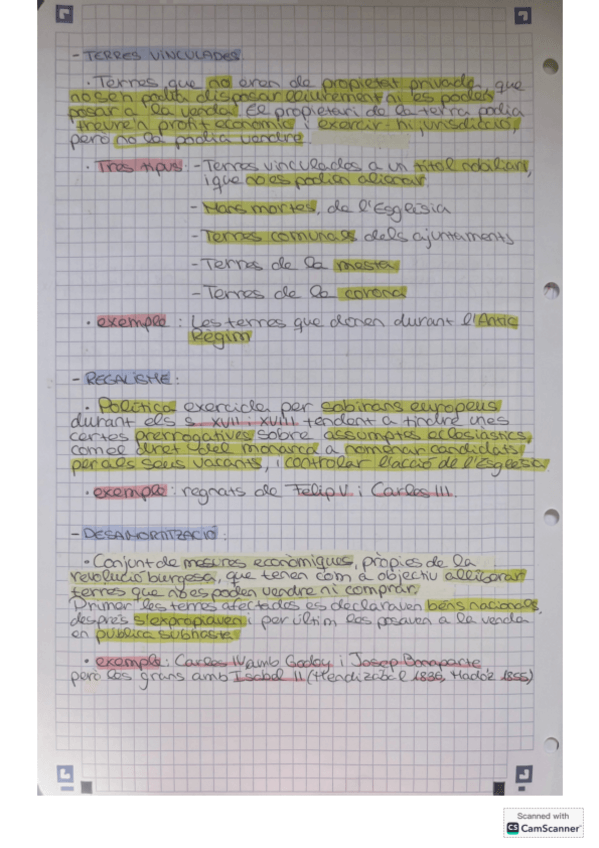 - TERRES VINCULADES:
· Terres que no eren de propietat privada, que
no se'n podia disposar lliurement ni es podien
posar a la venda. El propietari de la terra podia
treure'n profit econòmic i exercir-hi jurisdicció,
però no la podia vendre.
· Tres tipus: - Terres vinculades a un títol nobiliari,
i que no es podien alienar.
- Mans mortes, de l'Església
- Terres comunals dels ajuntaments
- Terres de la mesta
- Terres de la corona
· exemple: Les terres que donen durant l'Antic
Règim
- REGALISME:
· Política exercida per sobirans europeus
durant els s. XVII i XVIII tendent a tindre unes
certes prerrogatives sobre assumptes eclesiàstics,
com el dret del monarca a nomenar candidats
per als seus vacants, i controlar l'acció de l'Església
· exemple: regnats de Felip V i Carles III.
- DESAMORTITZACIÓ:
· Conjunt de mesures econòmiques, pròpies de la
revolució burgesa, que tenen com a objectiu alliberar
terres que no es poden vendre ni comprar.
Primer les terres afectades es declaraven bens nacionals,
després s'expropiaven i per últim les posaven a la venda
en pública subhasta.
· exemple: Carles IV amb Godoy i Josep Bonaparte
però les grans amb Isabel II (Mendizábal 1836, Madoz 1855)
Scanned with
CS CamScanner